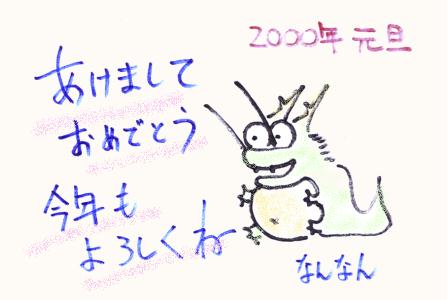 2000年 元旦
あけまして
おめでとう
今年も
よろしくね
なんなん